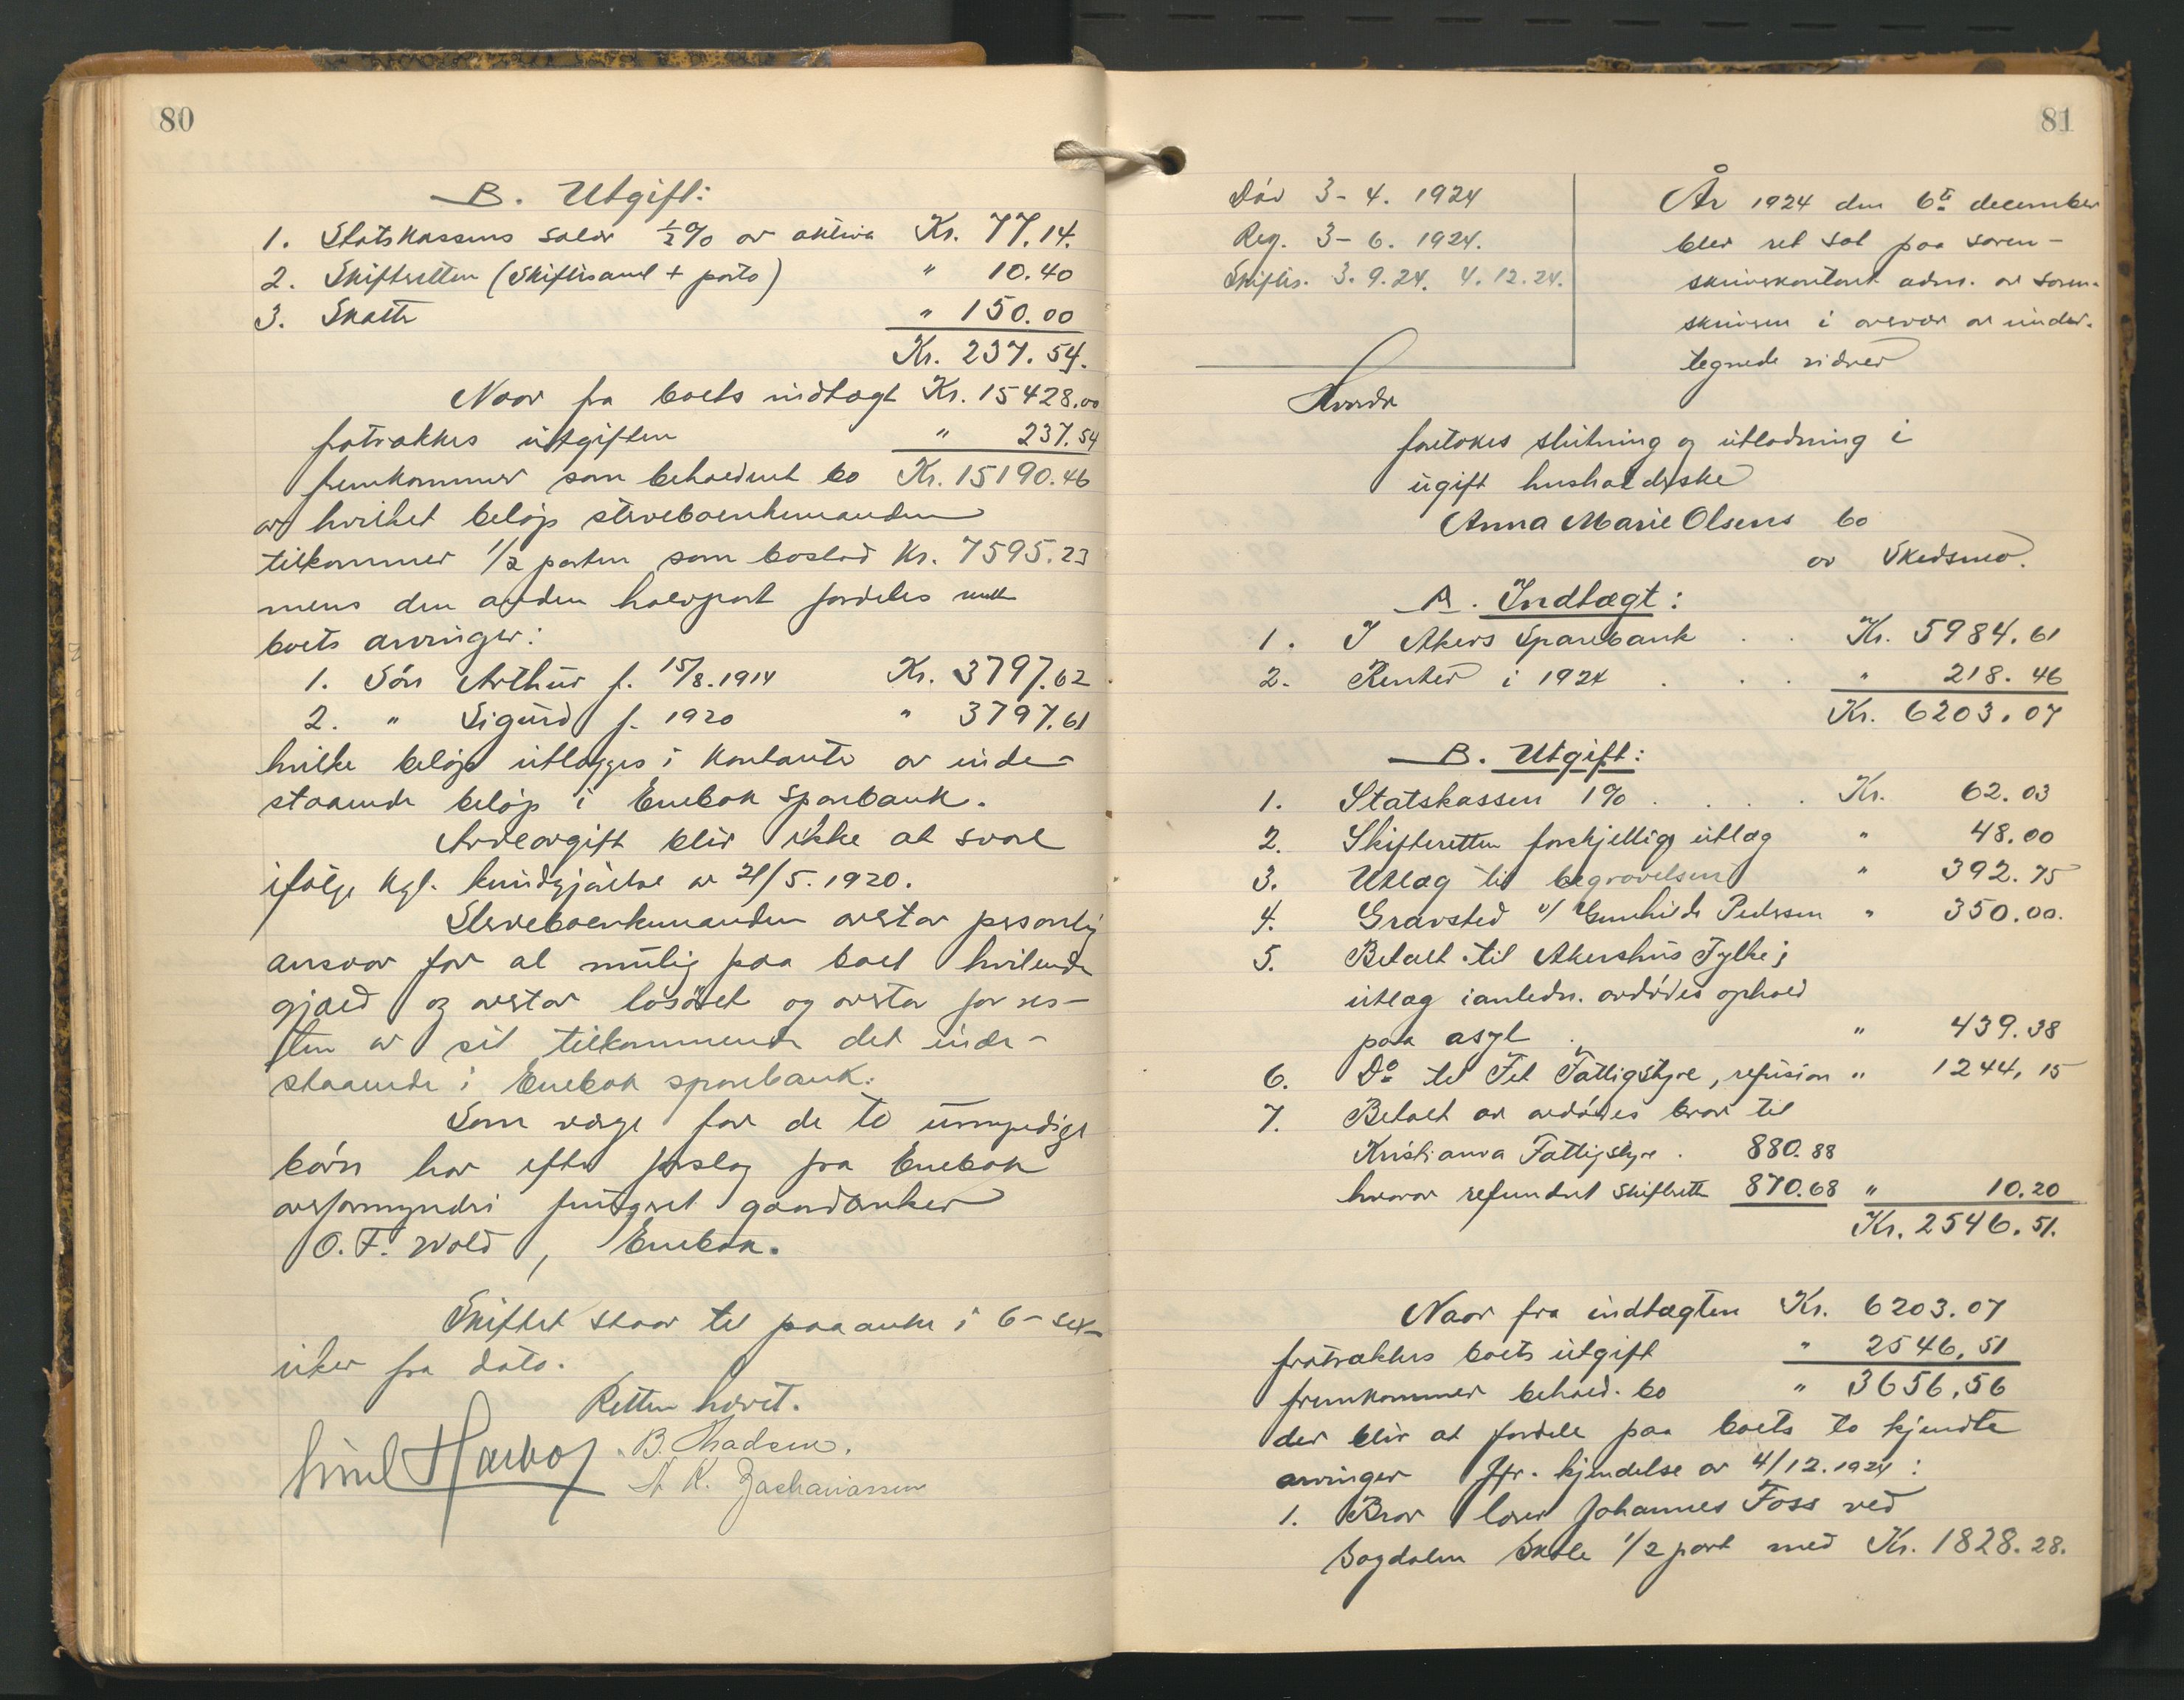 80
B. Utgift:
1. Statskassens salær ½% av aktiva Kr. 77.14.
2. Skifteretten (Skiftesaml + porto) " 10.40
3. Skatte " 150.00
Kr. 237.54.
Naar fra boets indtægt Kr. 15428.00
fratrækkes utgiften " 237.54
fremkommer som beholdent bo Kr. 15190.46
av hvilket beløp stervboenkemanden
tilkommer 1/2 parten som boslod Kr. 7595.23
mens den anden halvpart fordeles mell
boets arvinger:
1. Søn Arthur f. 15/8.1914 Kr. 3797.62
2. " Sigurd f. 1920 " 3797.61
hvilke beløp utlægges i kontante av inde-
staaende beløp i Enebak sparebank.
Arveavgift blir ikke at svare
ifølge kgl. kundgjørelse av 21/5.1920.
Stervboenkemanden overtar personlig
ansvar for al mulig paa boet hvilende
gjæld og overtar løsøret og overtar for res-
ten av sit tilkommende det inde-
staaende i Enebak sparebank.
Som verge for de to umyndige
børn har efter forslag fra Enebak
overformynderi fungeret gaardbruker
O.F. Wold, Enebak.
Skiftet staar til paaanke i 6-sex-
uker fra dato.
Retten hævet.
Emil Harboe B. Madsen.
A K. Zachariassen
81
Død 3-4. 1924
Reg. 3-6. 1924.
Skiftes. 3.9.24. 4.12.24.
År 1924 den 6te december
blev ret sat paa soren-
skriverkontoret adm. av soren-
skriveren i overvær av under-
tegnede vidner
Hvorda
foretokes slutning og utlodning i
ugift husholderske
Anna Marie Olsens bo
av Skedsmo.
A. Indtægt:
1. I Akers Sparebank . . Kr. 5984.61
2. Renter i 1924 . . . " 218.46
Kr. 6203.07
B. Utgift:
1. Statskassen 1% . . . . Kr. 62.03
2. Skifteretten forskjellige utlæg " 48.00
3. Utlæg til begravelsen " 392.75
4. Gravsted v/ Gunhilde Pedersen " 350.00.
5. Betalt til Akershus Fylke;
utlæg i anledn. avdødes ophold
paa asyl . " 439.38
6. Do til Fet Fattigstyre, refusion " 1244,15
7. Betalt av avdødes bror til
Kristiania Fattigstyre . 880.88
hvorav refunderet skifterett 870.68 " 10.20
Kr. 2546.51.
Naar fra indtægten Kr. 6203.07
fratrækkes boets utgift " 2546,51
fremkommer behold. bo " 3656,56
der blir at fordele paa boets to kjendte
arvinger Jfr. kjendelse av 4/12.1924:
1. Bror lærer Johannes Foss ved
Sagdalen Skole 1/2 part med Kr. 1828.28.